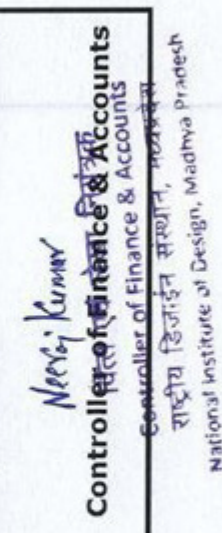 Neeraj Kumar
Controller of Finance & Accounts
वित्त एवं लेखा नियंत्रक
Controller of Finance & Accounts
राष्ट्रीय डिज़ाईन संस्थान, मध्यप्रदेश
National Institute of Design, Madhya Pradesh